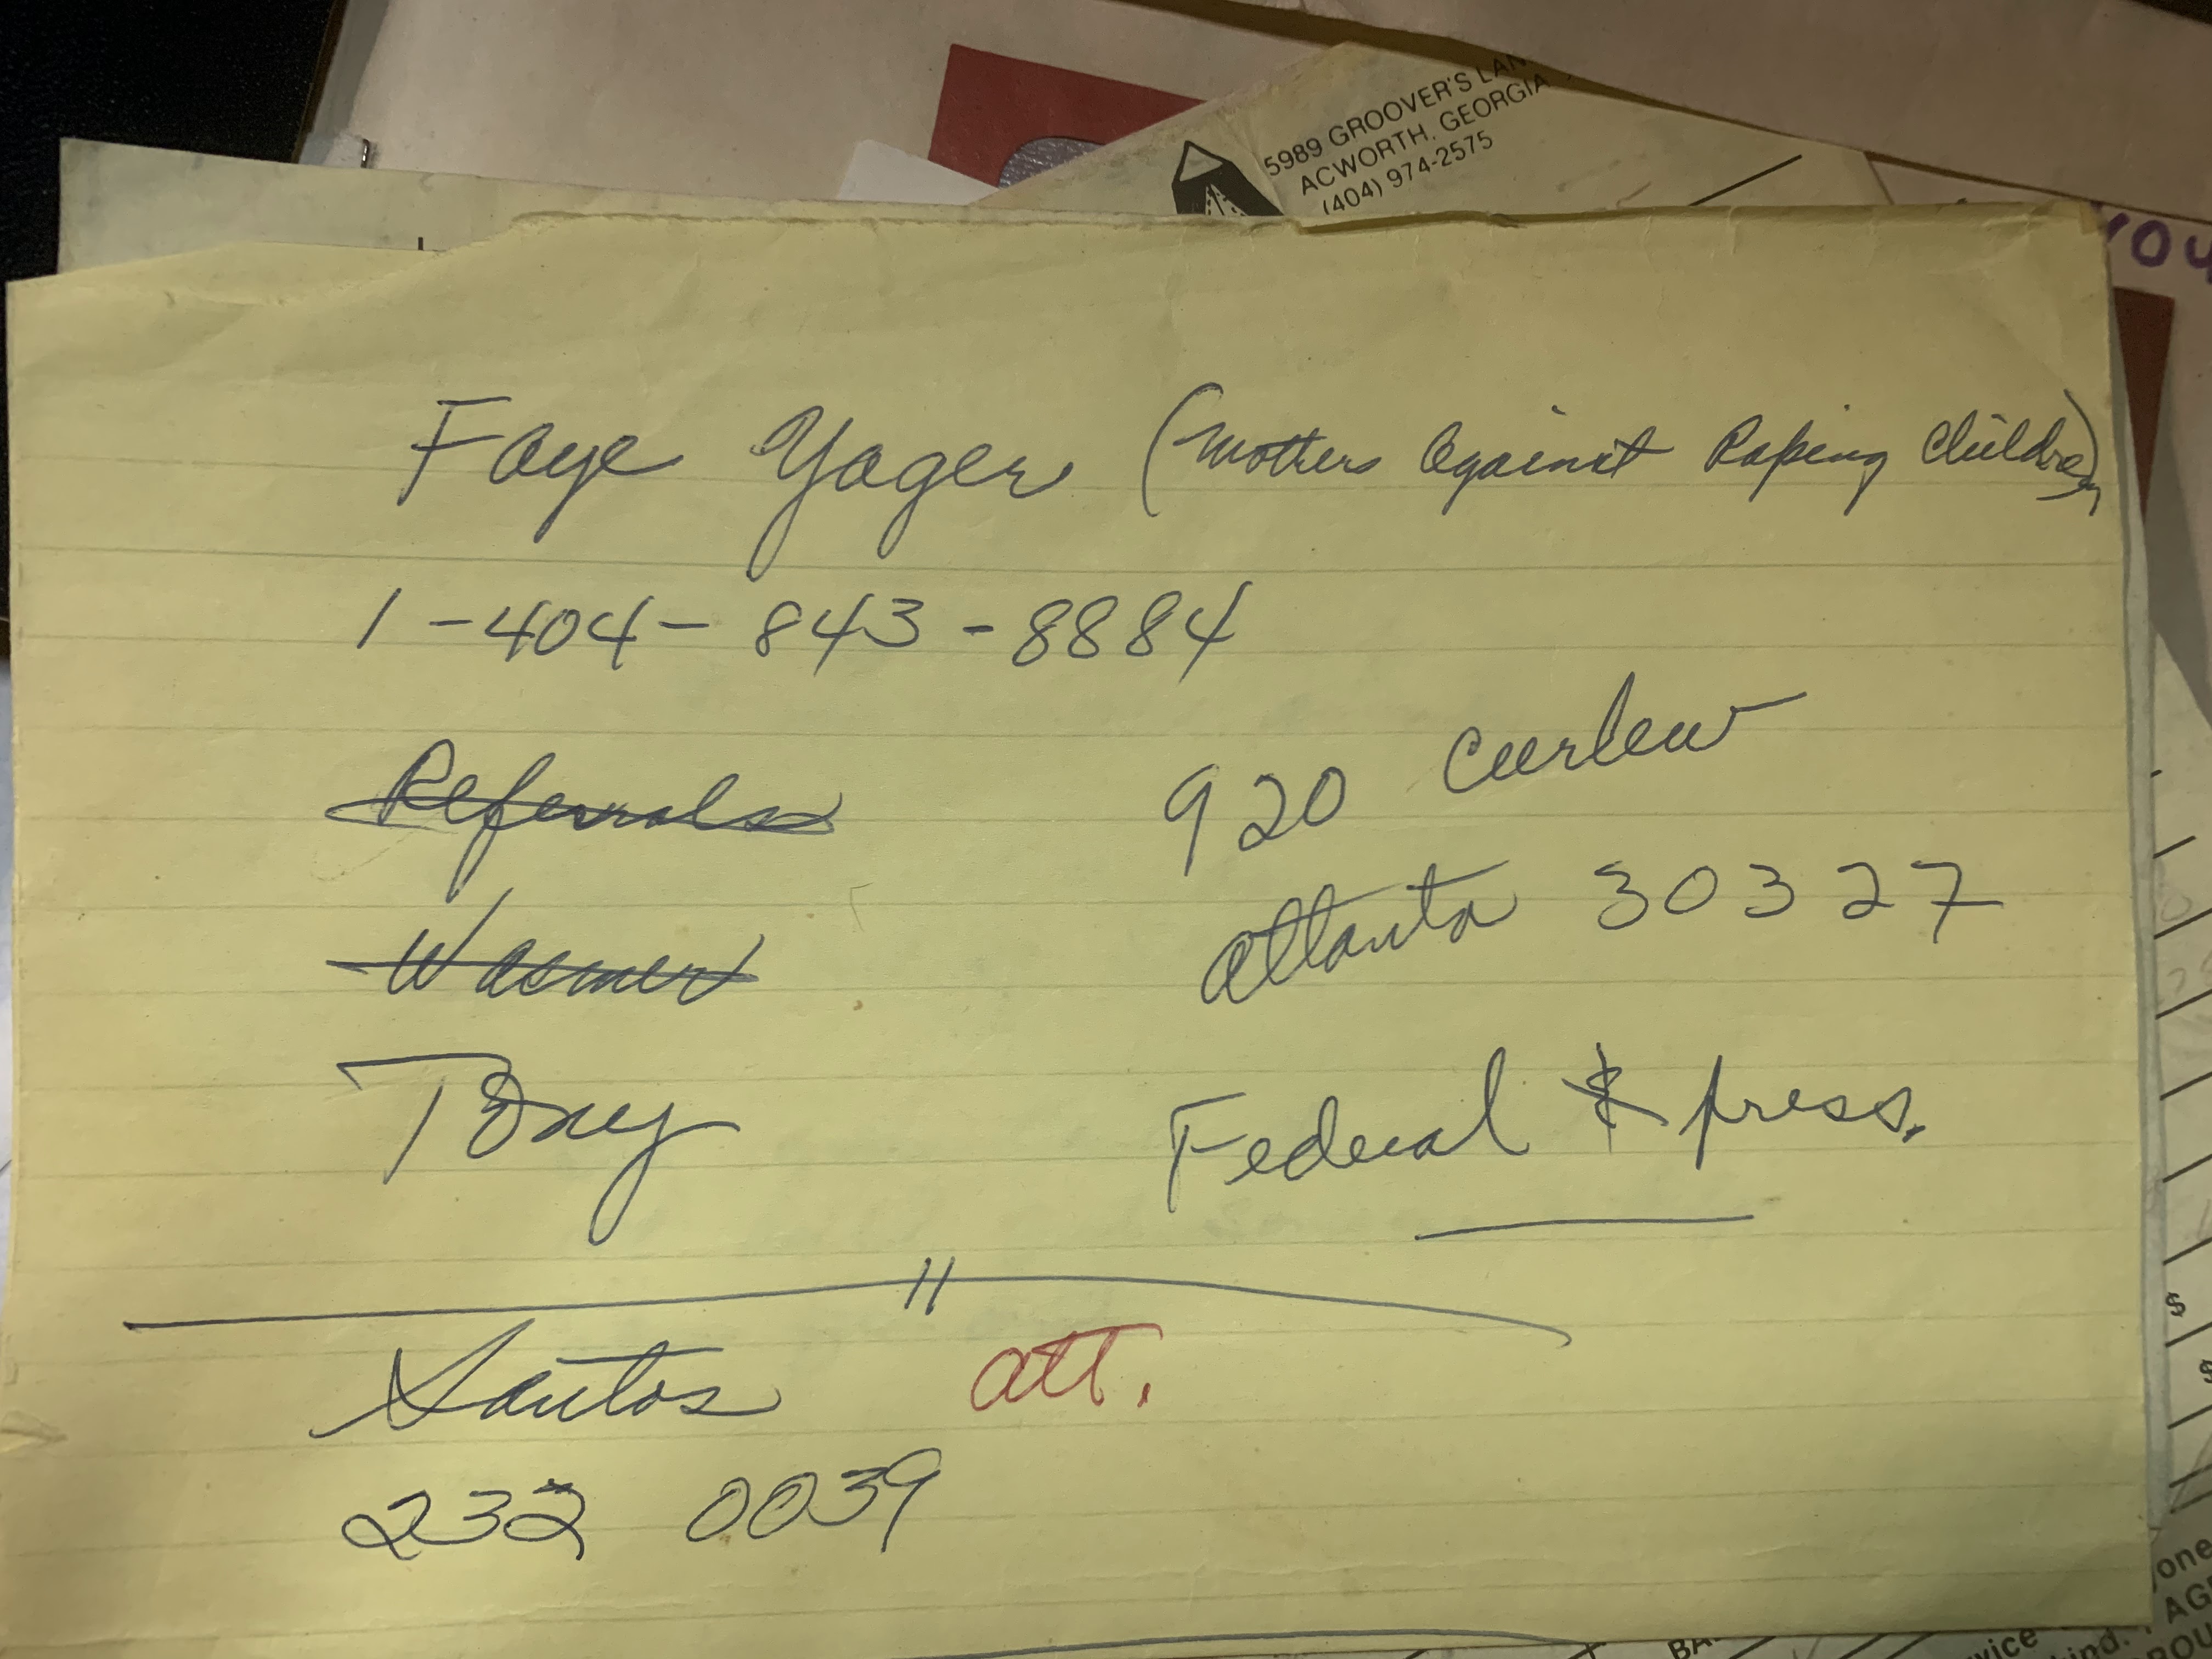 5989 GROOVER'S LAN
ACWORTH, GEORGIA
(404) 974-2575
Faye Yager (Mothers Against Raping Children)
1-404-843-8884
Referrals
920 Curlew
Atlanta 30327
Federal Xpress.
Santos att.
232 0039
$
$
one
AG
BA
vice
ind.
ROU